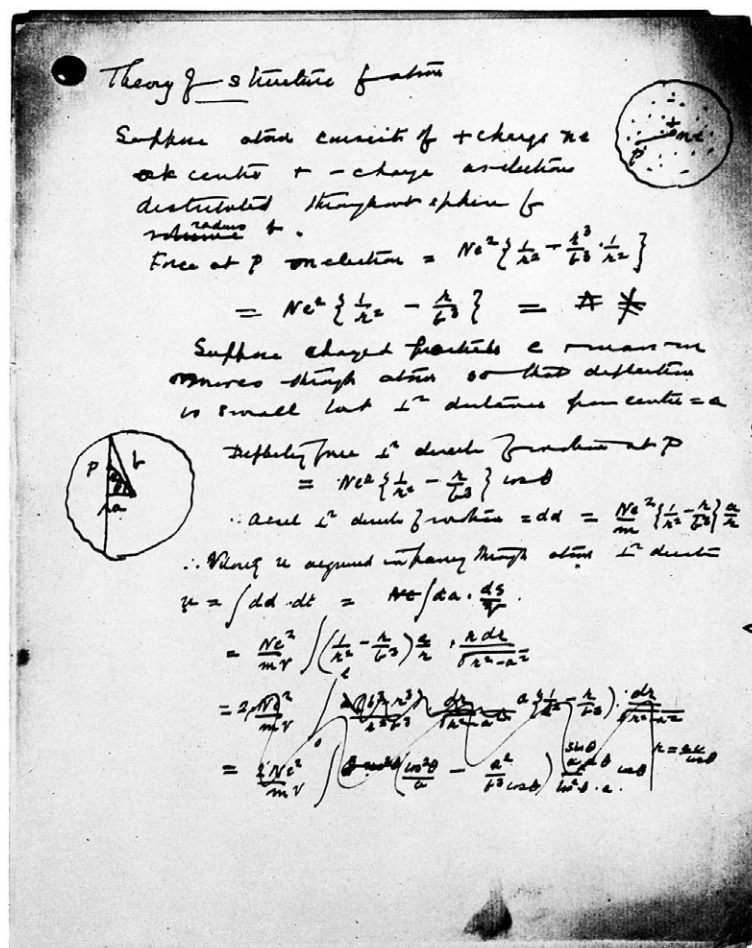 Theory of structure of atom
Suppose atom consists of + charge ne
at centre + - charge as electrons
distributed throughout sphere of
radius b.
Force at P on electron = Ne² { 1/r² - r³/b³ · 1/r² }
= Ne² { 1/r² - r/b³ } =
Suppose charged particle e mass m
moves through atom so that deflection
is small but ⊥ʳ distance from centre = a
Deflecting force ⊥ʳ direction of motion at P
= Ne² { 1/r² - r/b³ } cos θ
∴ accel ⊥ʳ direction of motion = dd = Ne²/m { 1/r² - r/b³ } a/r
∴ Velocity u acquired in passing through atom ⊥ʳ direction
= ∫ dd · dt = ∫ da · ds/v
= Ne²/mv ∫ ( 1/r² - r/b³ ) a/r · r dr/√r²-a²
= 2 Ne²/mv ∫ a { 1/r² - r/b³ } · dr/√r²-a²
= 2 Ne²/mv ∫ ( cos²θ/a - a²/b³ cos θ )
+
ne
P
P
b
θ
a